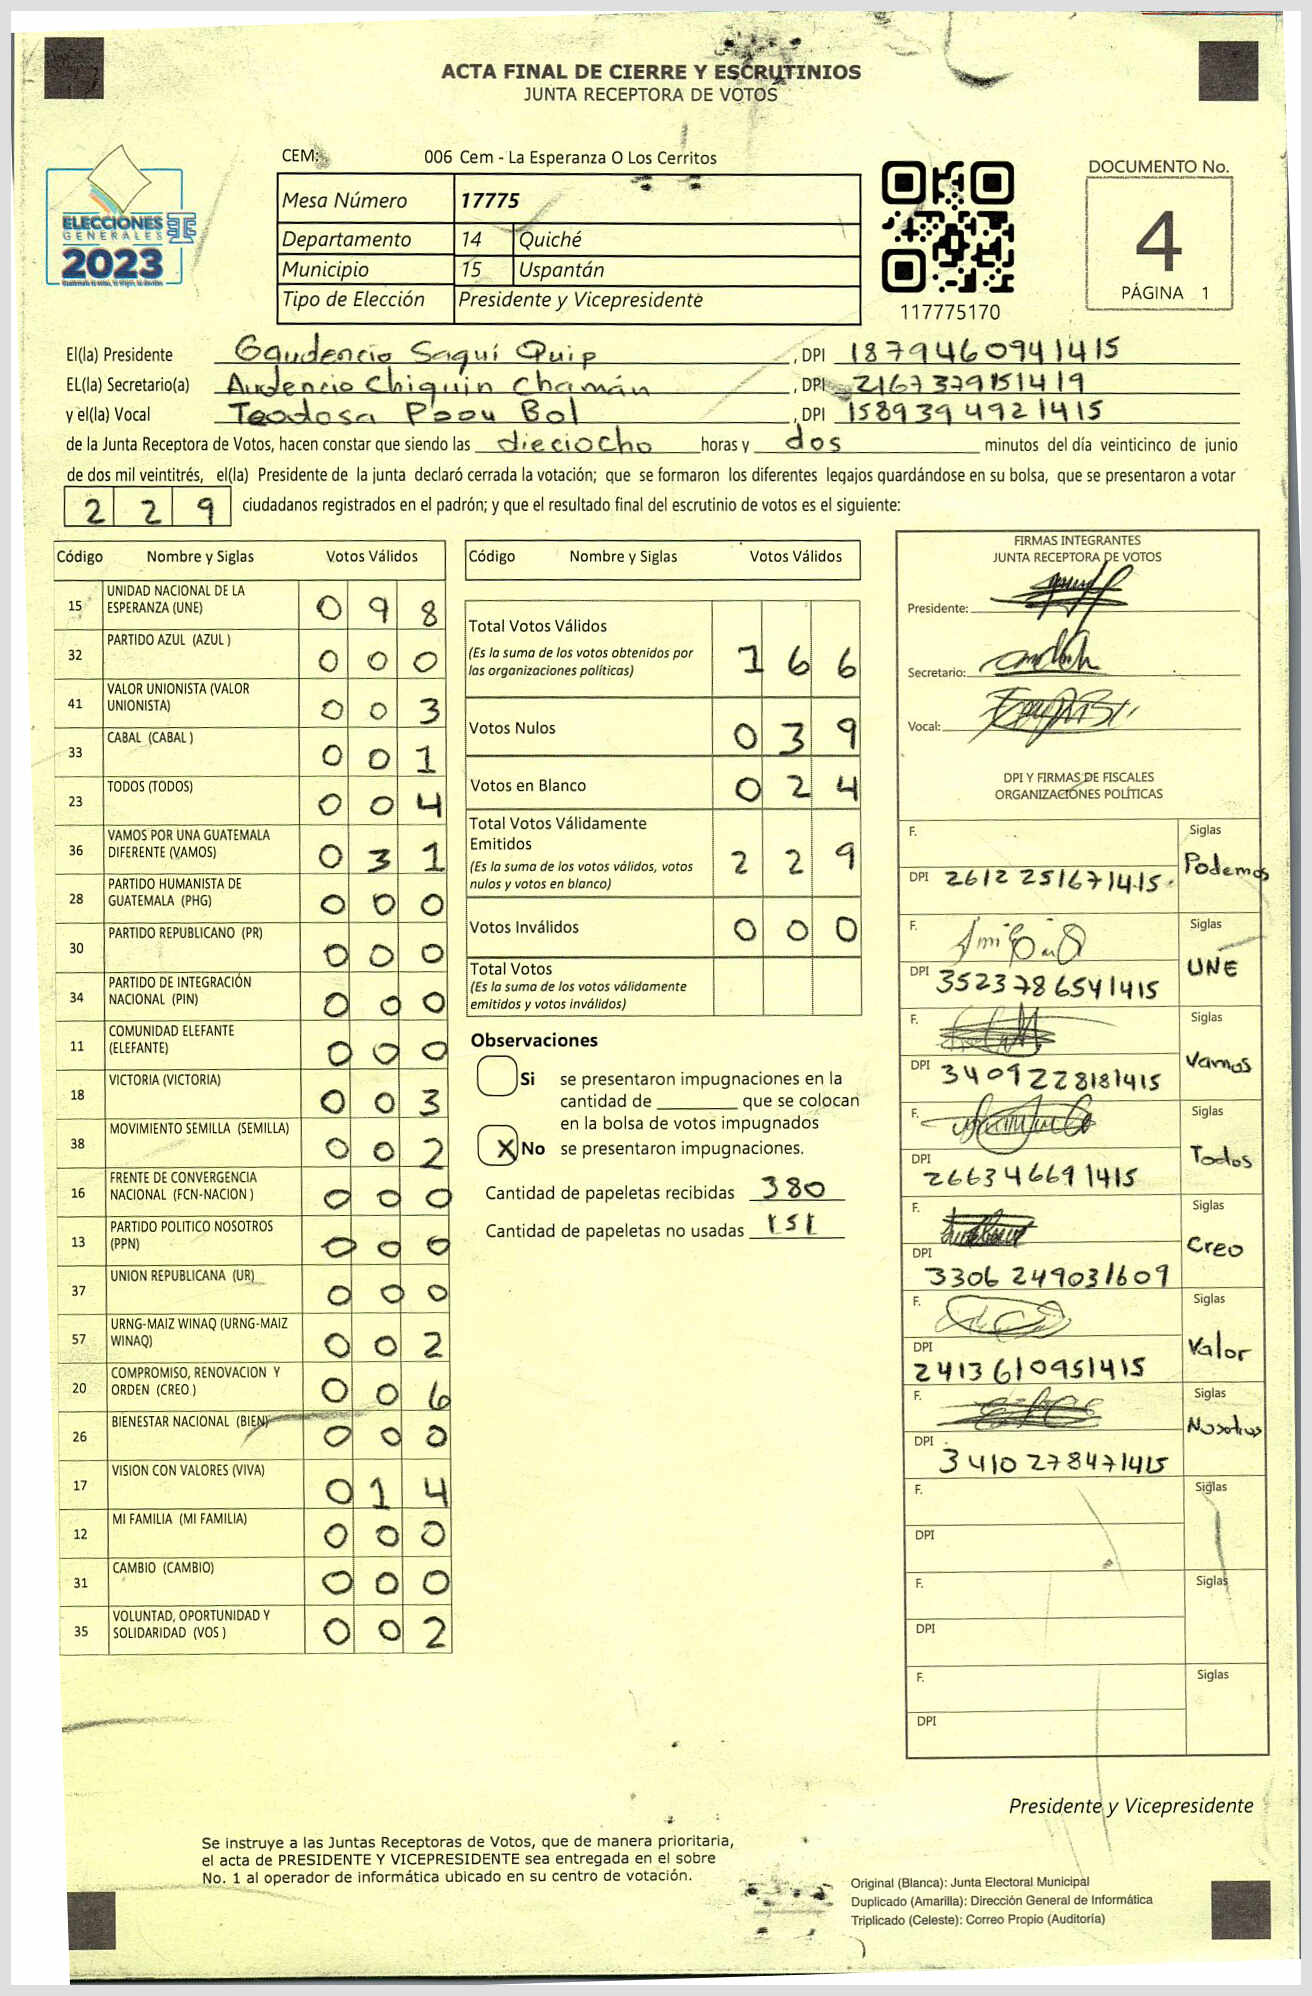 ACTA FINAL DE CIERRE Y ESCRUTINIOS
JUNTA RECEPTORA DE VOTOS
CEM: 006 Cem - La Esperanza O Los Cerritos
ELECCIONES
GENERALES
2023
Mesa Número 17775
Departamento 14 Quiché
Municipio 15 Uspantán
Tipo de Elección Presidente y Vicepresidente
117775170
DOCUMENTO No.
4
PÁGINA 1
El(la) Presidente Gaudencio Saquí Quip, DPI 1879460941415
EL(la) Secretario(a) Audencio Chiquin Chamán, DPI 2167379151419
y el(la) Vocal Teodosa Poou Bol, DPI 1589394921415
de la Junta Receptora de Votos, hacen constar que siendo las dieciocho horas y dos minutos del día veinticinco de junio
de dos mil veintitrés, el(la) Presidente de la junta declaró cerrada la votación; que se formaron los diferentes legajos guardándose en su bolsa, que se presentaron a votar
2 2 9 ciudadanos registrados en el padrón; y que el resultado final del escrutinio de votos es el siguiente:
Código Nombre y Siglas Votos Válidos
15 UNIDAD NACIONAL DE LA ESPERANZA (UNE) 0 9 8
32 PARTIDO AZUL (AZUL ) 0 0 0
41 VALOR UNIONISTA (VALOR UNIONISTA) 0 0 3
33 CABAL (CABAL ) 0 0 1
23 TODOS (TODOS) 0 0 4
36 VAMOS POR UNA GUATEMALA DIFERENTE (VAMOS) 0 3 1
28 PARTIDO HUMANISTA DE GUATEMALA (PHG) 0 0 0
30 PARTIDO REPUBLICANO (PR) 0 0 0
34 PARTIDO DE INTEGRACIÓN NACIONAL (PIN) 0 0 0
11 COMUNIDAD ELEFANTE (ELEFANTE) 0 0 0
18 VICTORIA (VICTORIA) 0 0 3
38 MOVIMIENTO SEMILLA (SEMILLA) 0 0 2
16 FRENTE DE CONVERGENCIA NACIONAL (FCN-NACION ) 0 0 0
13 PARTIDO POLITICO NOSOTROS (PPN) 0 0 0
37 UNION REPUBLICANA (UR) 0 0 0
57 URNG-MAIZ WINAQ (URNG-MAIZ WINAQ) 0 0 2
20 COMPROMISO, RENOVACION Y ORDEN (CREO ) 0 0 6
26 BIENESTAR NACIONAL (BIEN) 0 0 0
17 VISION CON VALORES (VIVA) 0 1 4
12 MI FAMILIA (MI FAMILIA) 0 0 0
31 CAMBIO (CAMBIO) 0 0 0
35 VOLUNTAD, OPORTUNIDAD Y SOLIDARIDAD (VOS ) 0 0 2
Código Nombre y Siglas Votos Válidos
Total Votos Válidos 1 6 6
(Es la suma de los votos obtenidos por
las organizaciones políticas)
Votos Nulos 0 3 9
Votos en Blanco 0 2 4
Total Votos Válidamente
Emitidos 2 2 9
(Es la suma de los votos válidos, votos
nulos y votos en blanco)
Votos Inválidos 0 0 0
Total Votos
(Es la suma de los votos válidamente
emitidos y votos inválidos)
Observaciones
Si se presentaron impugnaciones en la
cantidad de ________ que se colocan
en la bolsa de votos impugnados
X No se presentaron impugnaciones.
Cantidad de papeletas recibidas 380
Cantidad de papeletas no usadas 151
FIRMAS INTEGRANTES
JUNTA RECEPTORA DE VOTOS
Presidente:
Secretario:
Vocal:
DPI Y FIRMAS DE FISCALES
ORGANIZACIONES POLÍTICAS
F. Siglas
DPI 2612 251671415. Podemos
F. Siglas
DPI 3523786541415 UNE
F. Siglas
DPI 3409228181415 Vamos
F. Siglas
DPI 266346691415 Todos
F. Siglas
DPI 3306 249031609 Creo
F. Siglas
DPI 2413610951415 Valor
F. Siglas
DPI 3410278471415 Nosotros
F. Siglas
DPI
F. Siglas
DPI
F. Siglas
DPI
Presidente y Vicepresidente
Se instruye a las Juntas Receptoras de Votos, que de manera prioritaria,
el acta de PRESIDENTE Y VICEPRESIDENTE sea entregada en el sobre
No. 1 al operador de informática ubicado en su centro de votación.
Original (Blanca): Junta Electoral Municipal
Duplicado (Amarilla): Dirección General de Informática
Triplicado (Celeste): Correo Propio (Auditoría)